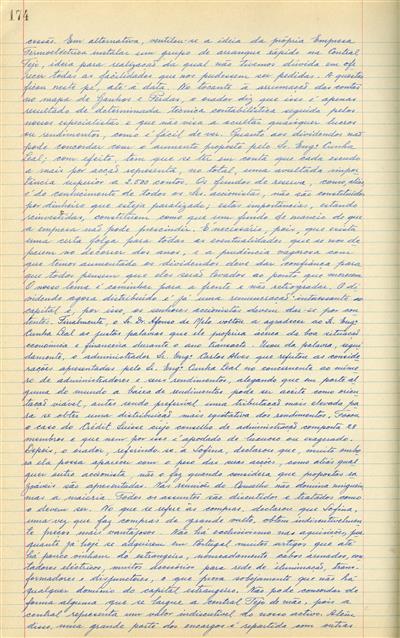 174
cessão. Em alternativa, ventilou-se a ideia da própria Empresa
Termoeléctrica instalar um grupo de arranque rápido na Central
Tejo, ideia para realização da qual não tivemos dúvida em ofe-
recer todas as facilidades que nos pudessem ser pedidas. A questão
ficou neste pé, até à data. No tocante à arrumação das contas
no mapa de Ganhos e Perdas, o orador diz que isso é apenas
resultado de determinada técnica contabilística seguida pelos
nossos especialistas e que não visa a ocultar quaisquer lucros
ou rendimentos, como é fácil de ver. Quanto aos dividendos não
pode concordar com o aumento proposto pelo Sr. Engº. Cunha
Leal; com efeito, tem que se ter em conta que cada escudo
a mais por acção representa, no total, uma avultada impor-
tância superior a 2.500 contos. Os fundos de reserva, como aliás
é do conhecimento de todos os Srs. Accionistas, não são constituídos
por dinheiro que esteja paralizado; estas importâncias, estando
reinvestidas, constituem como que um fundo de maneio de que
a empresa não pode prescindir. É necessário, pois, que exista
uma certa folga para todas as eventualidades que se nos de-
parem no decorrer dos anos, e a prudência vagarosa com
que temos aumentado os dividendos deve dar confiança para
que todos pensem que eles serão levados ao ponto que merecem.
O nosso lema é caminhar para a frente e não retrogradar. O di-
videndo agora distribuído é já uma remuneração interessante ao
capital e, por isso, os senhores accionistas devem dar-se por con-
tentes. Finalmente, o Sr. Dr. Afonso de Melo voltou a agradecer ao Sr. Engº.
Cunha Leal as justas palavras que ele proferiu acerca da boa situação
económica e financeira durante o ano transacto. Usou da palavra, segui-
damente, o administrador Sr. Engº. Carlos Alves que refutou as conside-
rações apresentadas pelo Sr. Engº. Cunha Leal no concernente ao núme-
ro de administradores e seus rendimentos, alegando que em parte al-
guma do mundo a baixa de rendimentos pode ser aceite como orien-
tação viável, antes sendo preferível uma tributação mais elevada pa-
ra se obter uma distribuição mais equitativa dos rendimentos. Focou
o caso do Crédit Suisse cujo conselho de administração comporta 28
membros e que nem por isso é apodado de luxuoso ou exagerado.
Depois, o orador, referindo-se à Sofina, declarou que, muito embo-
ra ela possa aparecer com o peso das suas acções, como aliás qual-
quer outro accionista, não o faz quando considera que propostas ra-
zoáveis são apresentadas. Nas reuniões do Conselho não domina ninguém
mas a maioria. Todos os assuntos são discutidos e tratados como
o devem ser. No que se refere às compras, declarou que Sofina,
uma vez que faz compras de grande vulto, obtém indiscutivelmen-
te preços mais vantajosos. Não há exclusivismo nas aquisições, por-
quanto já hoje se adquirem em Portugal muitos artigos que até
há pouco vinham do estrangeiro, nomeadamente cabos armados, con-
tadores eléctricos, muitos acessórios para rede de iluminação, trans-
formadores e disjunctores, o que prova sobejamente que não há
qualquer domínio do capital estrangeiro. Não pode concordar de
forma alguma que se largue a Central Tejo de mão, pois a
central representa um valor indiscutível do nosso activo. Além
disso, uma grande parte dos encargos é repartida com outras